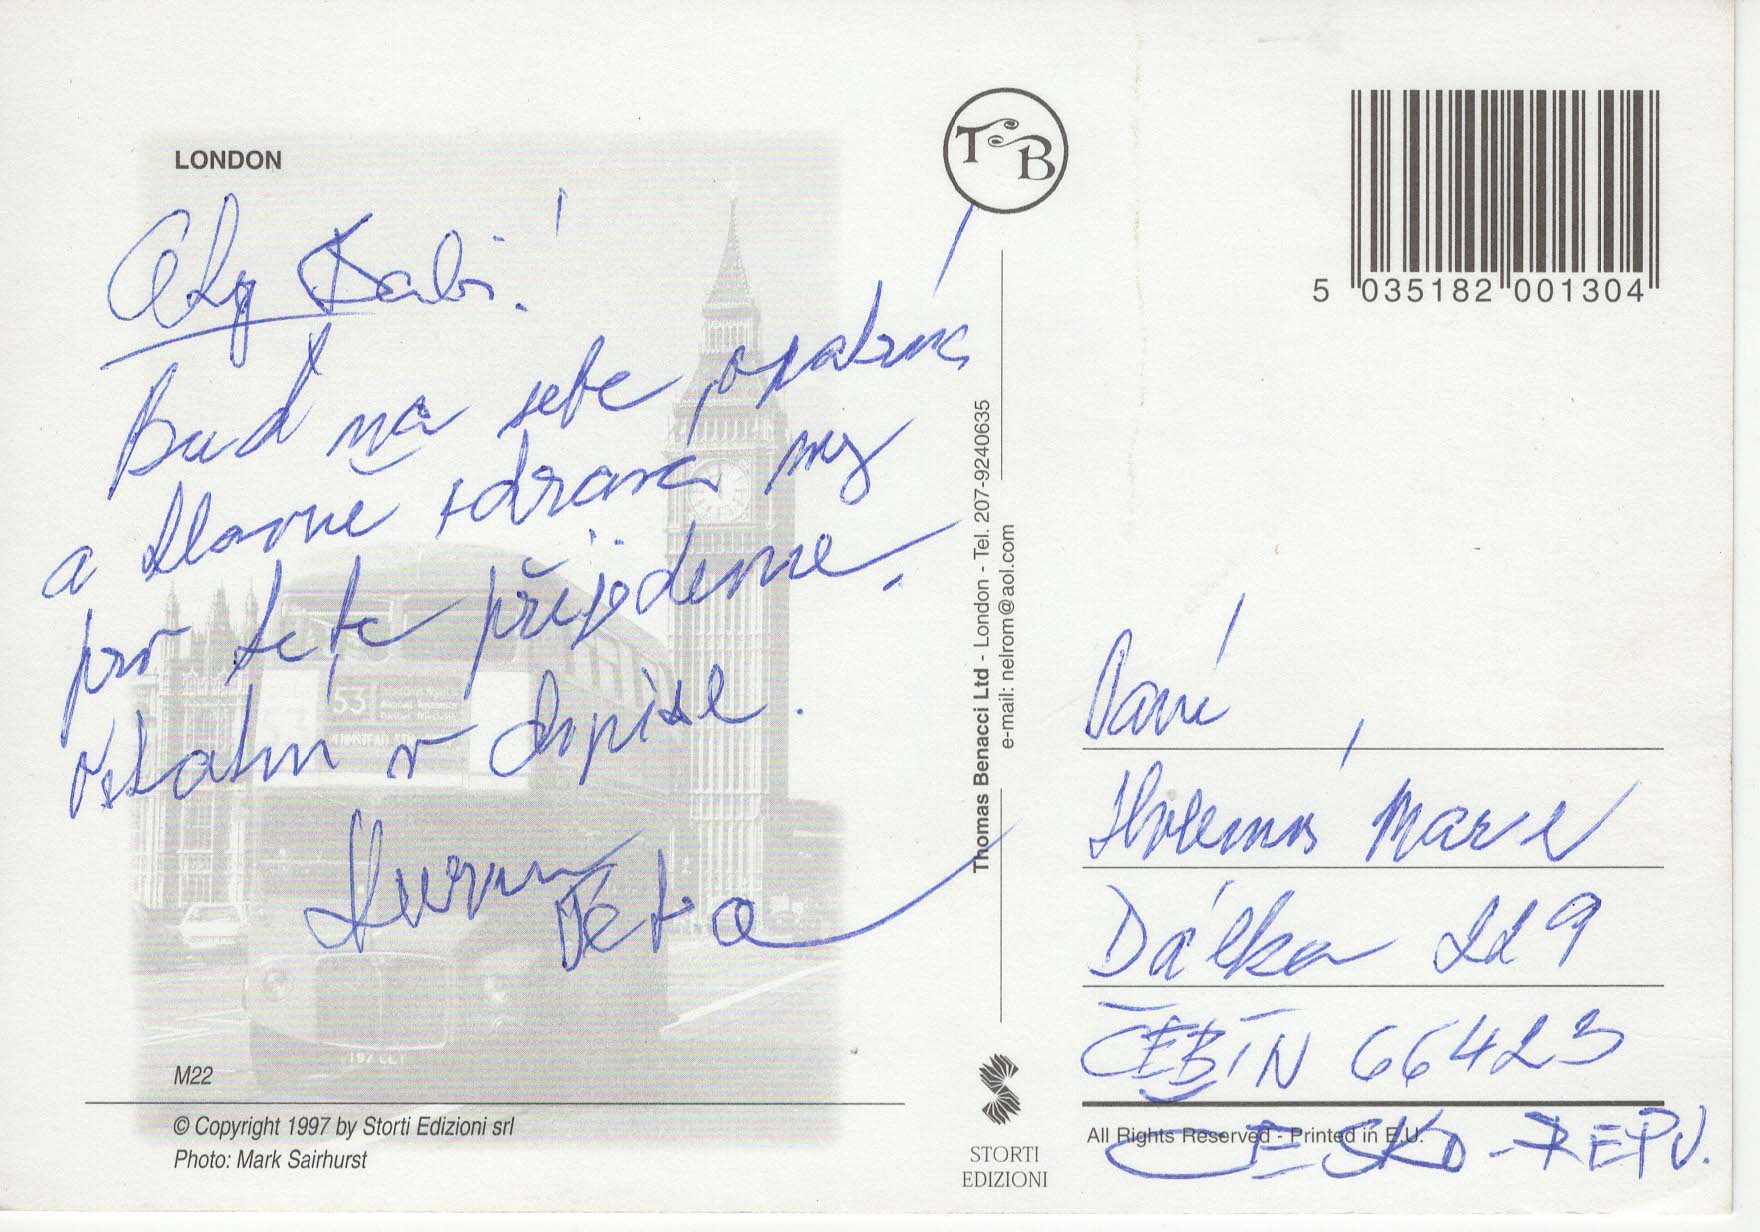 LONDON
Ahoj Babi!
Bud na sebe opatrná
a hlavně zdravá my
pro tebe přijedeme.
Ostatní v dopise.
Teta
53
M22
© Copyright 1997 by Storti Edizioni srl
Photo: Mark Sairhurst
T B
Thomas Benacci Ltd - London - Tel. 207-9240635
e-mail: nelrom@aol.com
STORTI
EDIZIONI
5 035182 001304
Paní
Marie
Dálka 229
ČEBÍN 66423
All Rights Reserved - Printed in E.U.
ČESKO-REPU.